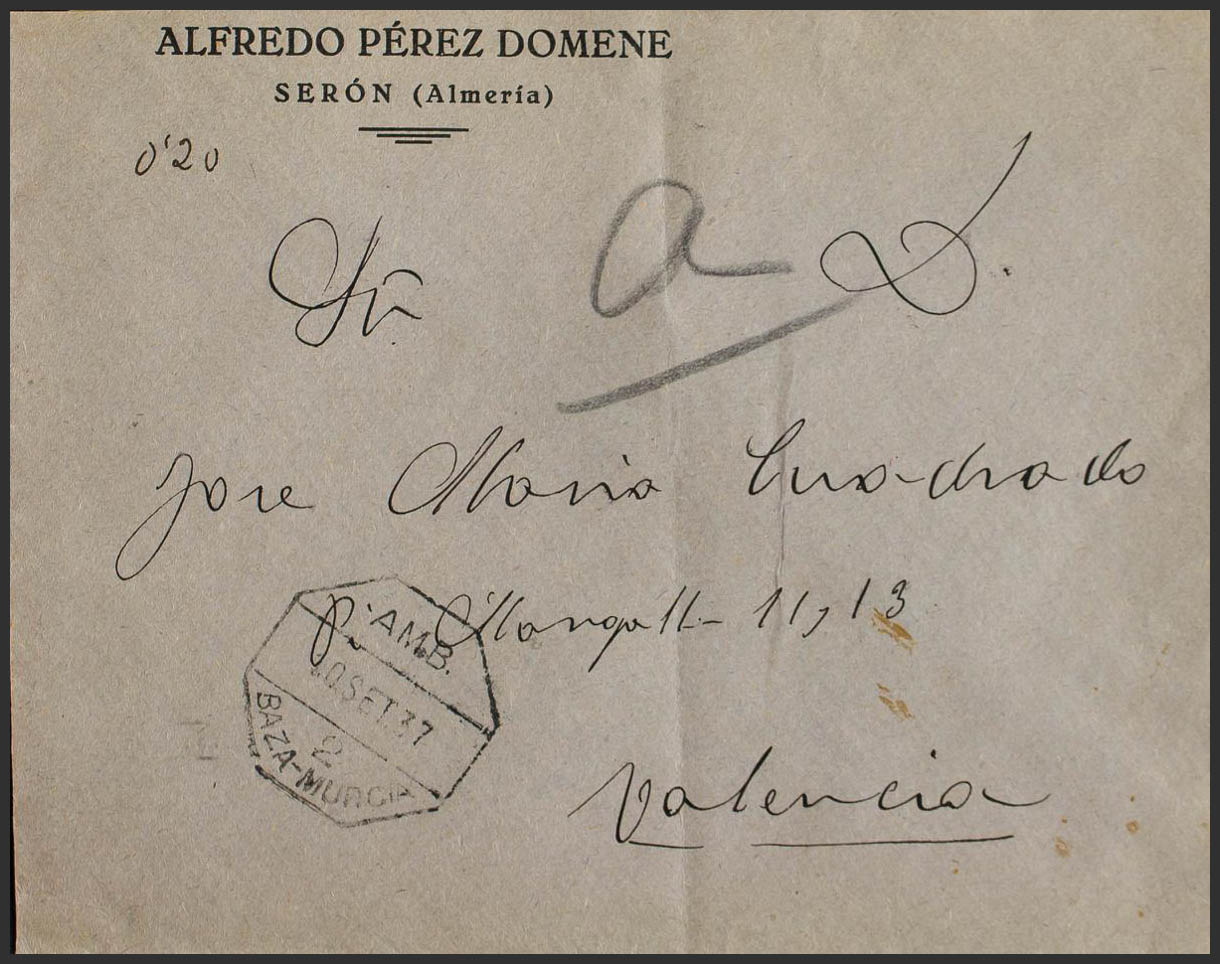 ALFREDO PÉREZ DOMENE
SERÓN (Almería)
0'20
Sr. D.
a
Jose Maria Cuadrado
P. Margall- 11, 13
Valencia
AMB.
10.SET.37
2
BAZA-MURCIA